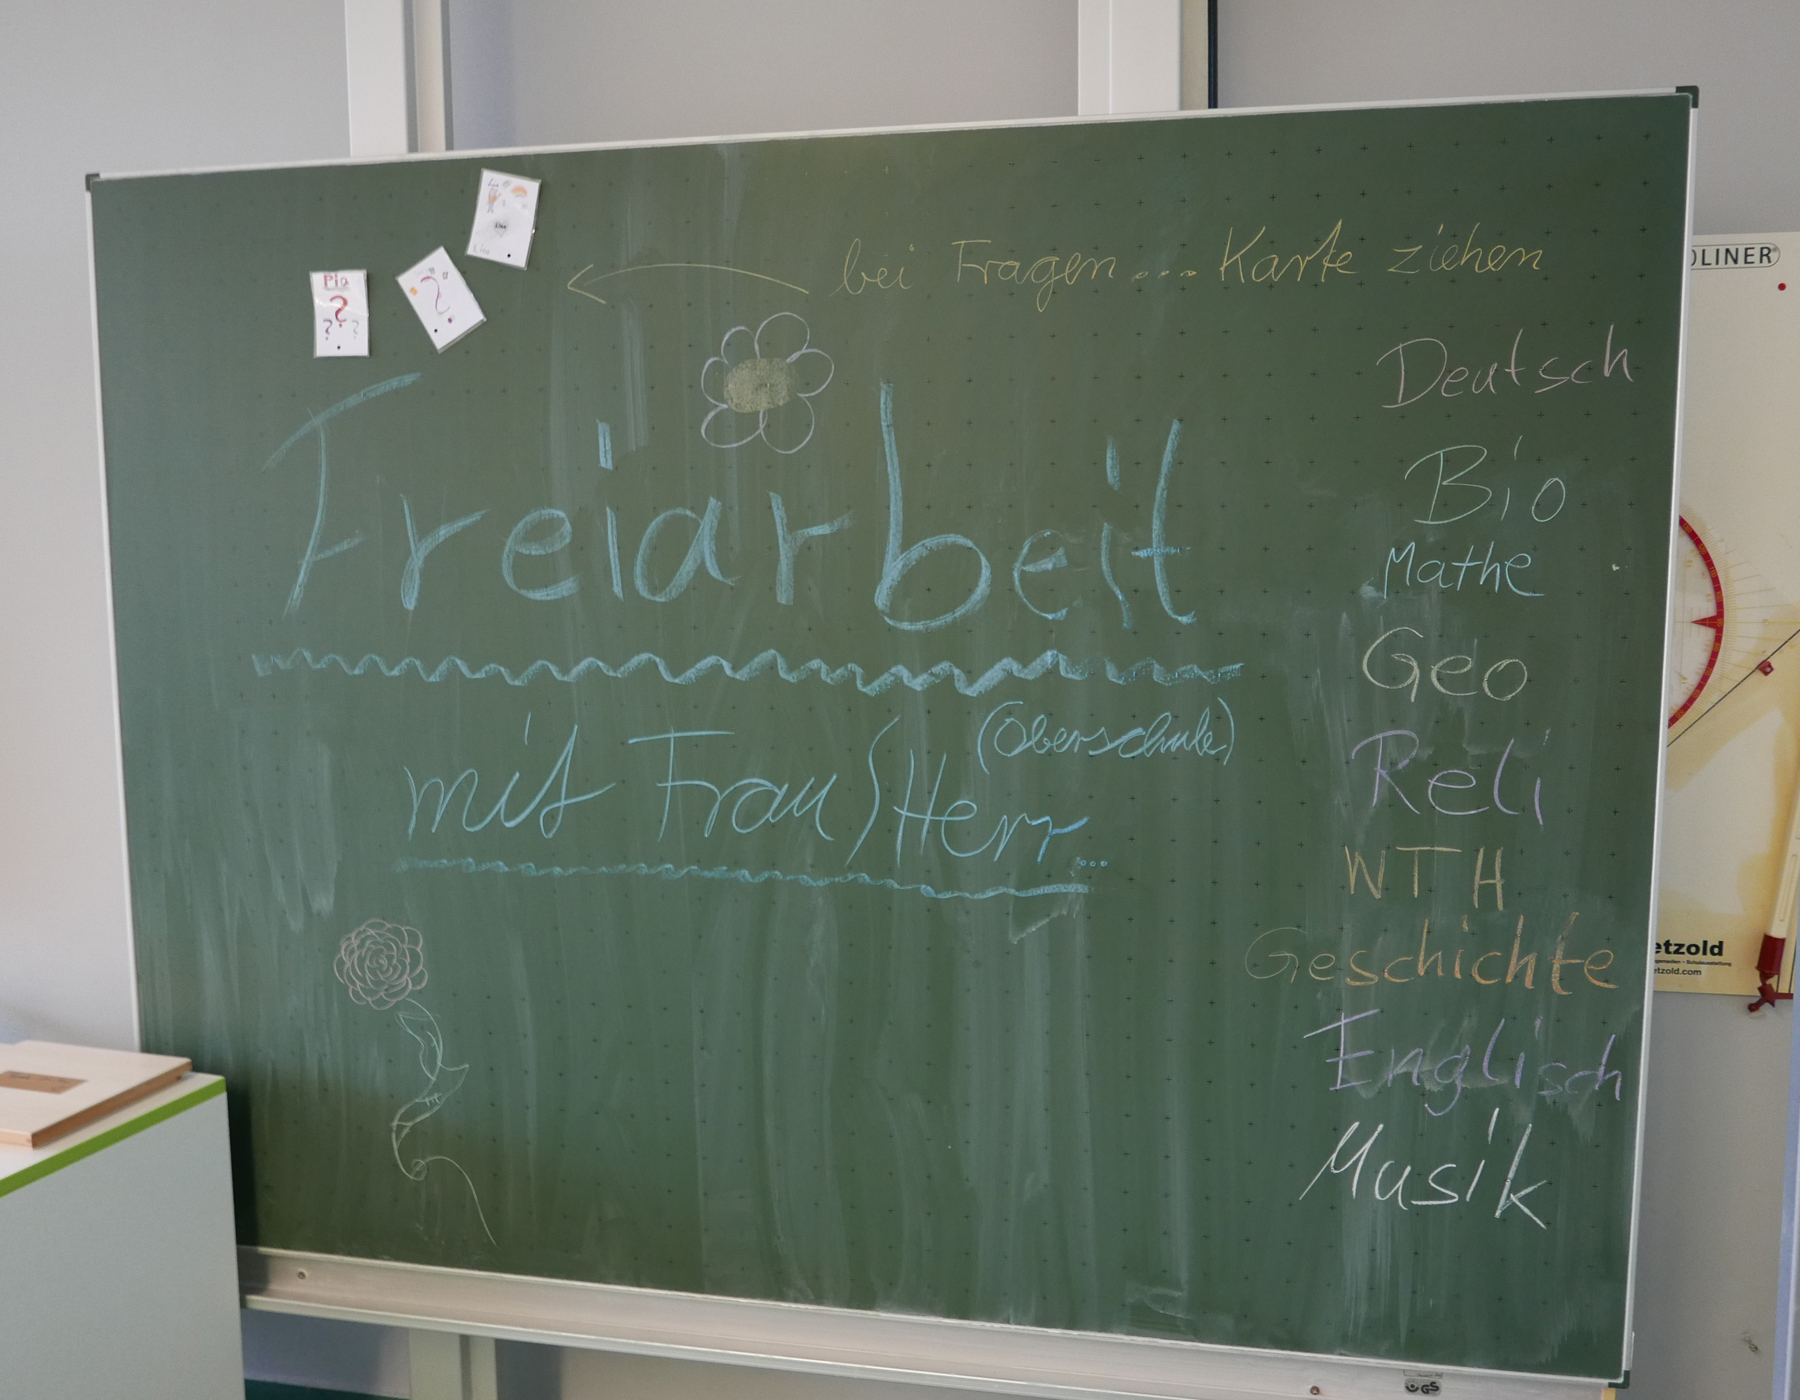 Pia
bei Fragen... Karte ziehen
Freiarbeit
mit Frau/Herr...
(Oberschule)
Deutsch
Bio
Mathe
Geo
Reli
WTH
Geschichte
Englisch
Musik
OLINER
etzold
etzold.com
GS